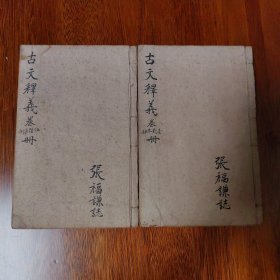 古文釋義卷
冊
張福謙誌
古文釋義卷
冊
張福謙誌